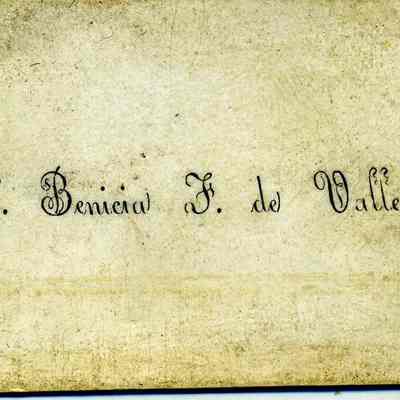 . Benicia F. de Valle